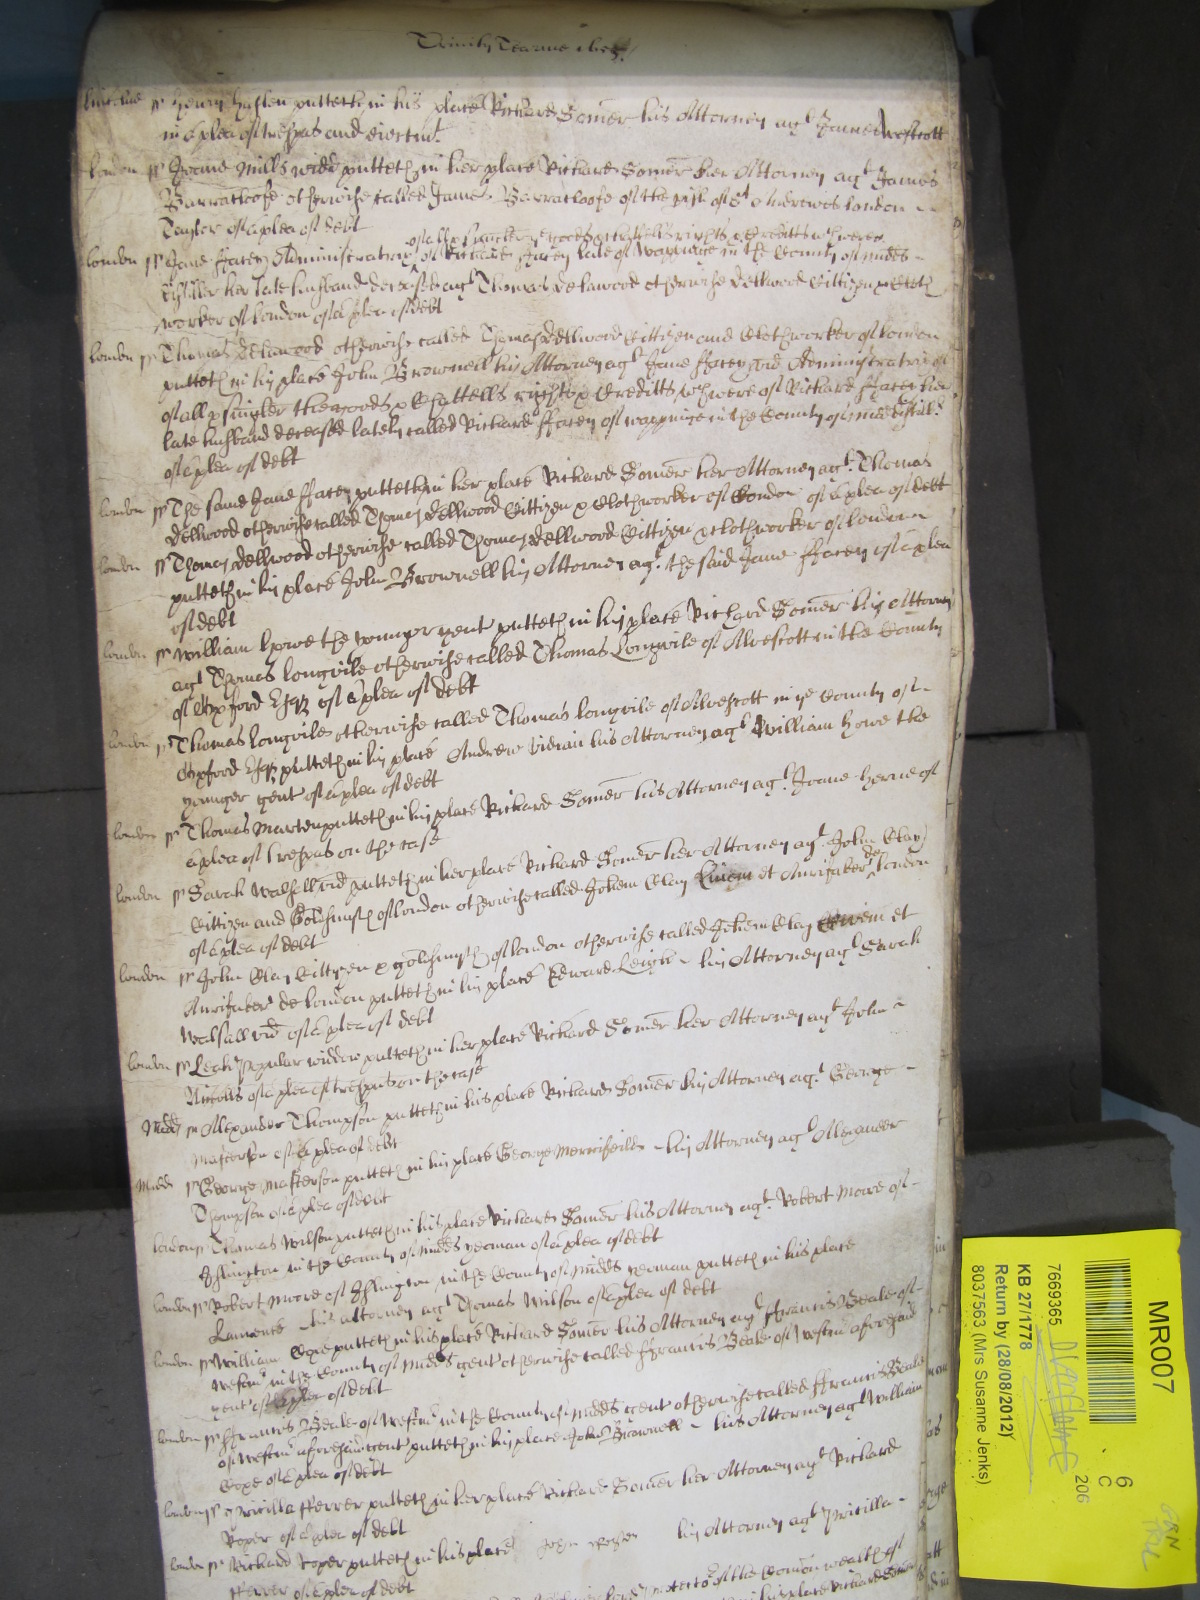 Trinity Tearme
ss Henry putteth in his place Richard Somer his Attorney agt James Westcott
in a plea of trespas and eiectmt
London ss Joane Mills widd putteth in her place Richard Somer her Attorney agt James
Barratloofe otherwise called James Barratloofe of the pish of St Andrewes London
Taylor of a plea of debt
of all & singuler ye goods chattells rights & Creditts wch were
London ss Jane ffarey Administratrix of Richard ffarey late of Wappinge in the County of Midds
her late husband deceased agt Thomas Delawood otherwise Dellwood Cittizen & Cloth
worker of London of a plea of debt
London ss Thomas Delawood otherwise called Thomas Dellwood Cittizen and Clothworker of London
putteth in his place John Brownell his Attorney agt Jane ffarey vid Administratrix
of all & singler the goods & Chattells rights & Creditts wch were of Richard ffarey her
late husband deceased lately called Richard ffarey of Wappinge in the County of Midds
of a plea of debt
London ss The same Jane ffarey putteth in her place Richard Somer her Attorney agt Thomas
Dellwood otherwise called Thomas Dellwood Cittizen & Clothworker of London of a plea of debt
London ss Thomas Dellwood otherwise called Thomas Dellwood Cittizen & Clothworker of London
putteth in his place John Brownell his Attorney agt the said Jane ffarey of a plea
of debt
London ss William Howe the younger gent putteth in his place Richard Somer his Attorney
agt Thomas Longvile otherwise called Thomas Longvile of Alvescott in the County
of Oxford Esqr of a plea of debt
London ss Thomas Longvile otherwise called Thomas Longvile of Alvescott in ye County of
Oxford Esqr putteth in his place Andrew Vidian his Attorney agt William Howe the
younger gent of a plea of debt
London ss Thomas Marten putteth in his place Richard Somer his Attorney agt Joane Herne of
a plea of trespas on the case
London ss Sarah Walsall vid putteth in her place Richard Somer her Attorney agt John Clay
Cittizen and Goldsmyth of London otherwise called Johem Clay Civem et Aurifaber de London
of a plea of debt
London ss John Clay Cittizen & Goldsmyth of London otherwise called Johem Clay Civem et
Aurifaber de London putteth in his place Edward Leigh his Attorney agt Sarah
Walsall vid of a plea of debt
London ss Leah Popular widdow putteth in her place Richard Somer her Attorney agt John
Nicolls of a plea of trespas on the case
Midds ss Alexander Thompson putteth in his place Richard Somer his Attorney agt George
Masterson of a plea of debt
Midds ss George Masterson putteth in his place George Merrifeilde his Attorney agt Alexander
Thompson of a plea of debt
London ss Thomas Wilson putteth in his place Richard Somer his Attorney agt Robert Moore of
Islington in the County of Midds yeoman of a plea of debt
London ss Robert Moore of Islington in the County of Midds yeoman putteth in his place
Lawrence his attorney agt Thomas Wilson of a plea of debt
London ss William Cope putteth in his place Richard Somer his Attorney agt ffrancis Beale of
Westmr in the County of Midds gent otherwise called ffrancis Beale of Westmr aforesaid
gent of a plea of debt
London ss ffrancis Beale of Westmr in the County of Midds gent otherwise called ffrancis Beale
of Westmr aforesaid gent putteth in his place John Brownell his Attorney agt William
Cope of a plea of debt
London ss Pricilla fferrer putteth in her place Richard Somer her Attorney agt Richard
Roper of a plea of debt
London ss Richard Roper putteth in his place John his Attorney agt Pricilla
fferrer of a plea of debt
of the Common wealth of
in his place Richard Somer
MR007
6
C
206
7669365
KB 27/1778
Return by (28/08/2012)
8037563 (Mrs Susanne Jenks)